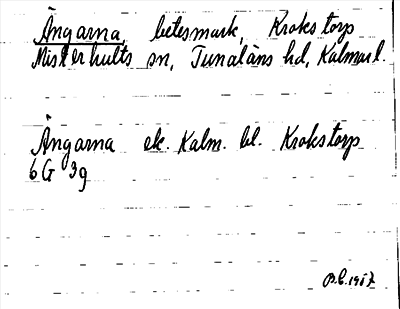 Ängarna, betesmark, Krokstorp
Misterhults sn, Tunaläns hd, Kalmar l.
Ängarna ek. Kalm. bl. Krokstorp
6 G 3g